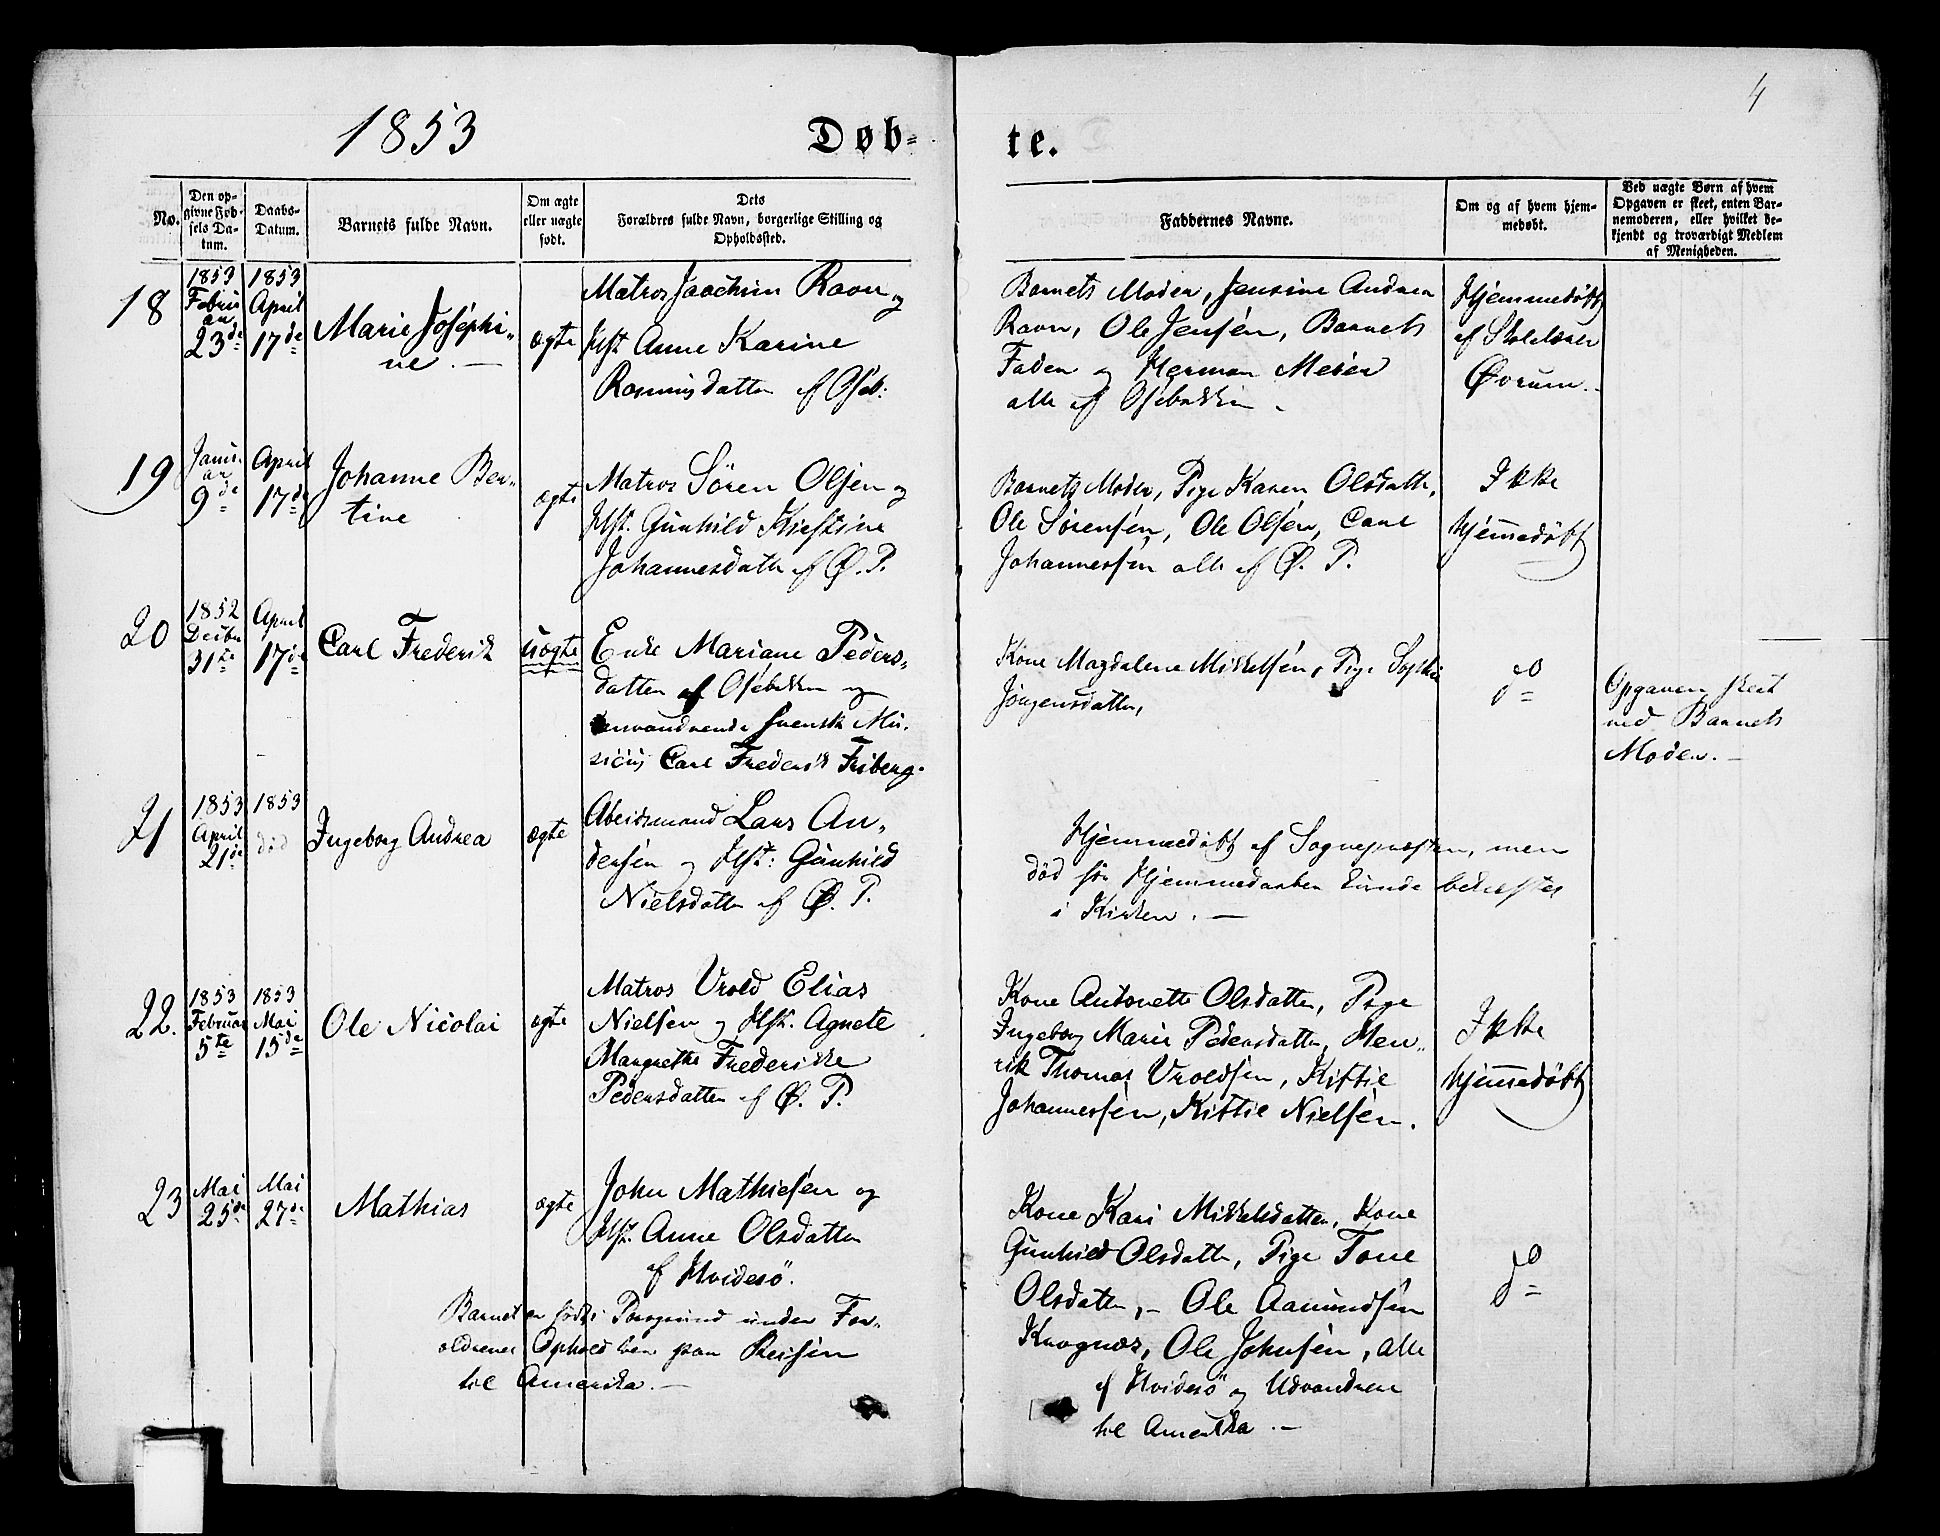 4
1853
Døb-
te.
No.
Den op-
givne Fød-
sels Da-
tum.
Daabs-
Datum.
Barnets fulde Navn.
Om ægte
eller uægte
født.
Dets
Forældres fulde Navn, borgerlige Stilling og
Opholdssted.
Faddernes Navne.
Om og af hvem hjem-
medøbt.
Ved uægte Børn af hvem
Opgaven er skeet, enten Bar-
nemoderen, eller hvilket be-
kjendt og troværdigt Medlem
af Menigheden.
18
1853
Febru
ar
23de
1853
April
17de
Marie Josephi-
ne. —
ægte
Matros Joachim Ravn og
Hst. Anne Karine
Rasmusdatter af Oseb:
Barnets Moder, Jensine Andrea
Ravn, Ole Jensen, Barnets
Fader og Herman Meier
alle af Osebakken.
Hjemmedøbt
af Skolelærer
Øvrum.
19
Janu-
ar
9de
April
17de
Johanne Ber-
tine
ægte
Matros Sören Olsen og
Hst. Gunhild Kirstine
Johannesdatter af Ø. P.
Barnets Moder, Pige Karen Olsdatter,
Ole Sørensen, Ole Olsen, Carl
Johannessen alle af Ø. P.
Ikke
hjemmedøbt
20
1852
Decbr
31te
April
17de
Carl Frederik
uægte
Enke Mariane Peders-
datter af Osebakken og
omvandrende svensk Mu-
sicus Carl Frederik Friberg.
Kone Magdalene Mikkelsen, Pige Sophie
Jörgensdatter,
do
Opgaven skeet
ved Barnets
Moder. —
21
1853
April
21de
1853
död
Ingeborg Andrea
ægte
Abeidsmand Lars An-
dersen og Hst: Gunhild
Nielsdatter af Ø. P.
Hjemmedøbt af Sognepræsten, men
död før Hjemmedaaben kunde bekræftes
i Kirken. —
22.
1853
Februar
5te
1853
Mai
15de
Ole Nicolai
ægte
Matros Vrold Elias
Nielsen og Hst. Agnete
Margrethe Frederikke
Pedersdatter af Ø. P.
Kone Antonette Olsdatter, Pige
Ingeborg Marie Pedersdatter, Hen-
rik Thomas Vroldsen, Kittil
Johannessen, Kittil Nielsen.
Ikke
hjemmedøbt
23
Mai
25de
Mai
27de
Mathias
ægte
John Mathiesen og
Hst. Anne Olsdatter
af Hvidesö.
Barnet er født i Porsgrund under For-
ældrenes Ophold her paa Reisen
til Amerika. —
Kone Kari Mikkelsdatter, Kone
Gunhild Olsdatter, Pige Tone
Olsdatter, – Ole Aamundsen
Kragnæs, Ole Johnsen, alle
af Hvidesö og Udvandrere
til Amerika. —
do